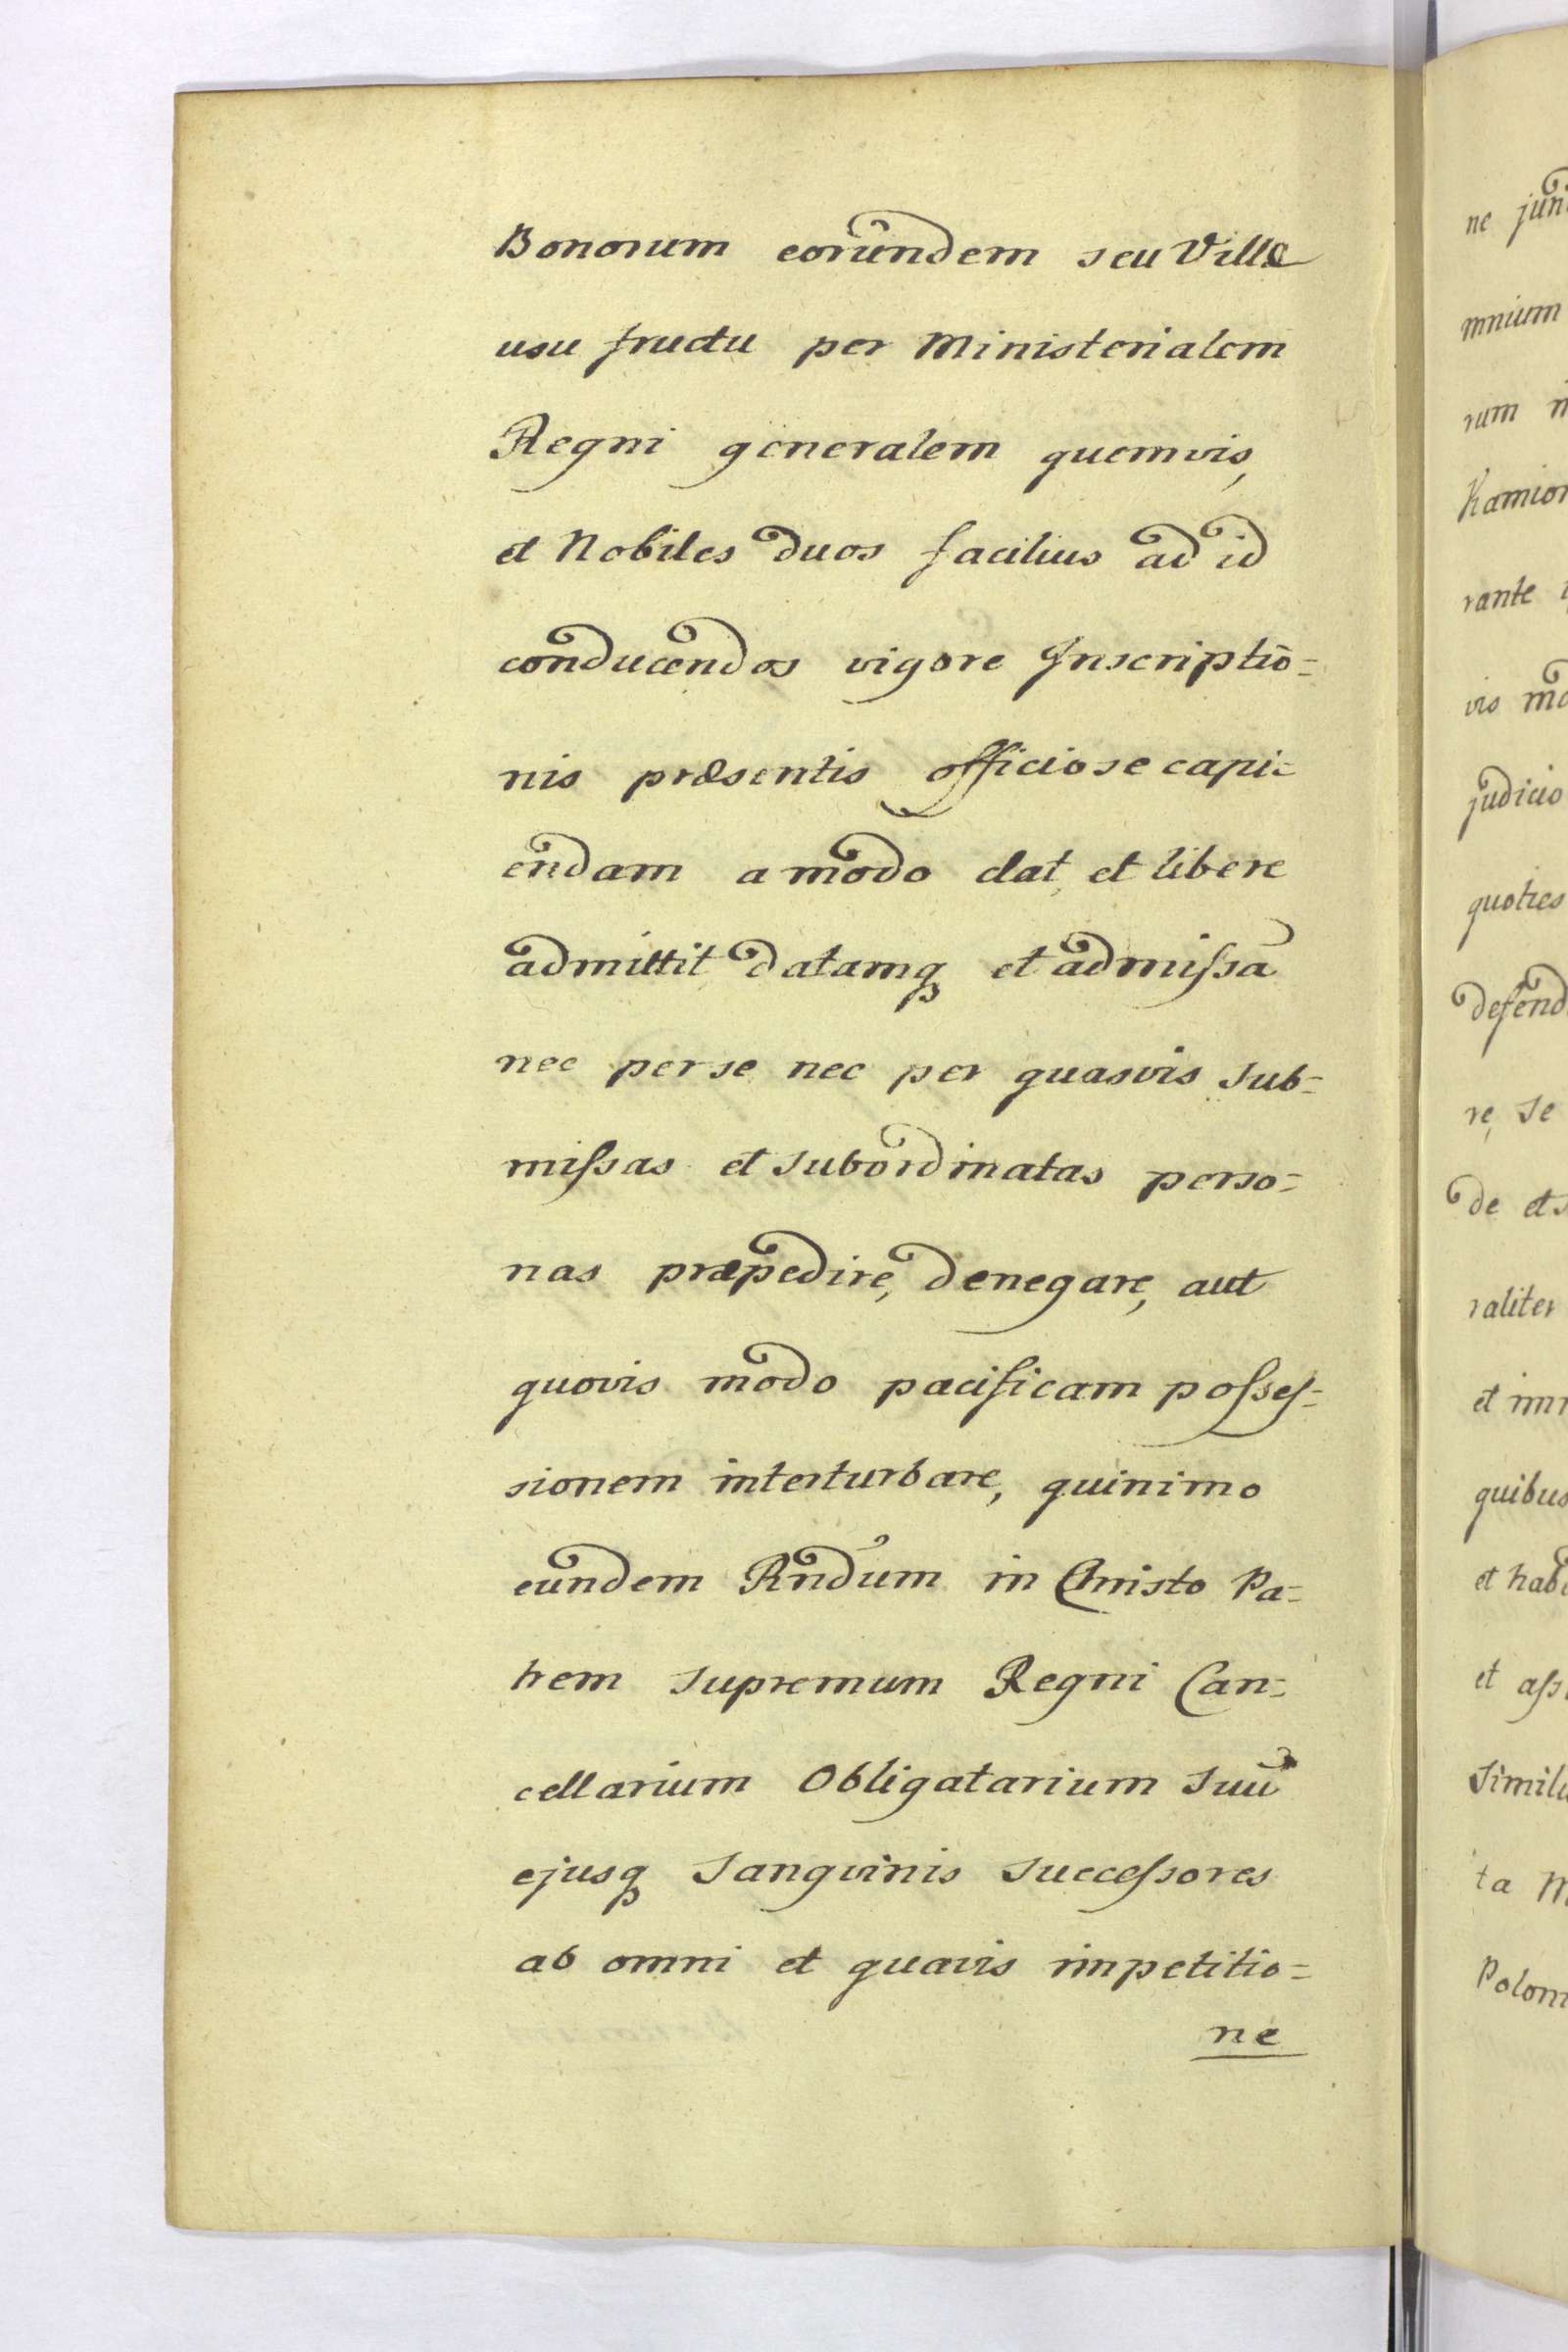 Bonorum eorundem seu Villæ
usu fructu per Ministerialem
Regni generalem quemvis,
et Nobiles duos facilius ad id
conducendos vigore Inscriptio=
nis præsentis officiose capi=
endam a modo dat, et libere
admittit datamq; et admissã
nec per se nec per quasvis sub=
missas et subordinatas perso=
nas præpedire, denegare, aut
quovis modo pacificam posses=
sionem interturbare, quinimo
eundem Rndum in Christo Pa=
trem supremum Regni Can=
cellarium Obligatarium suũ
ejusq; sangvinis successores
ab omni et quavis impetitio=
ne
ne
mnium
rum
rante
vis
judicio
quoties
defend
re, se
de et
raliter
et
quibus
et
et
ta